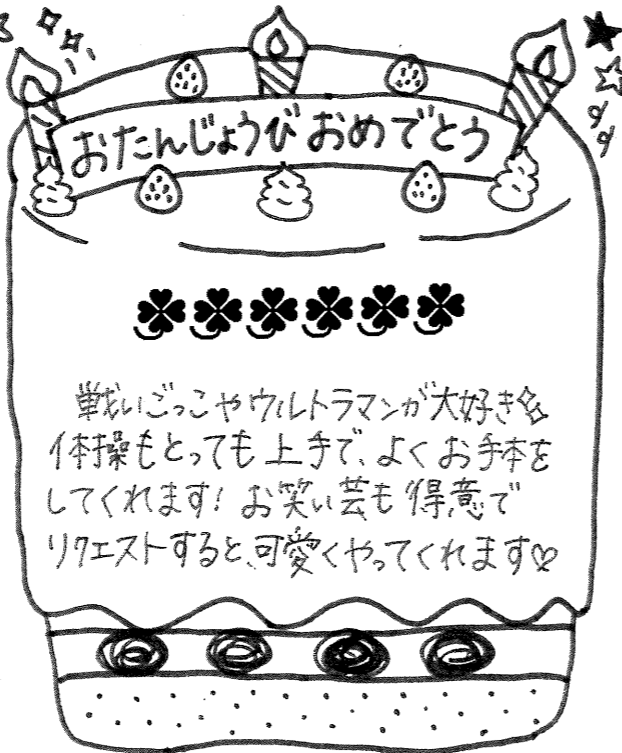 おたんじょうびおめでとう
戦いごっこやウルトラマンが大好き✨
体操もとっても上手で、よくお手本を
してくれます！お笑い芸も得意で
リクエストすると、可愛くやってくれます♡